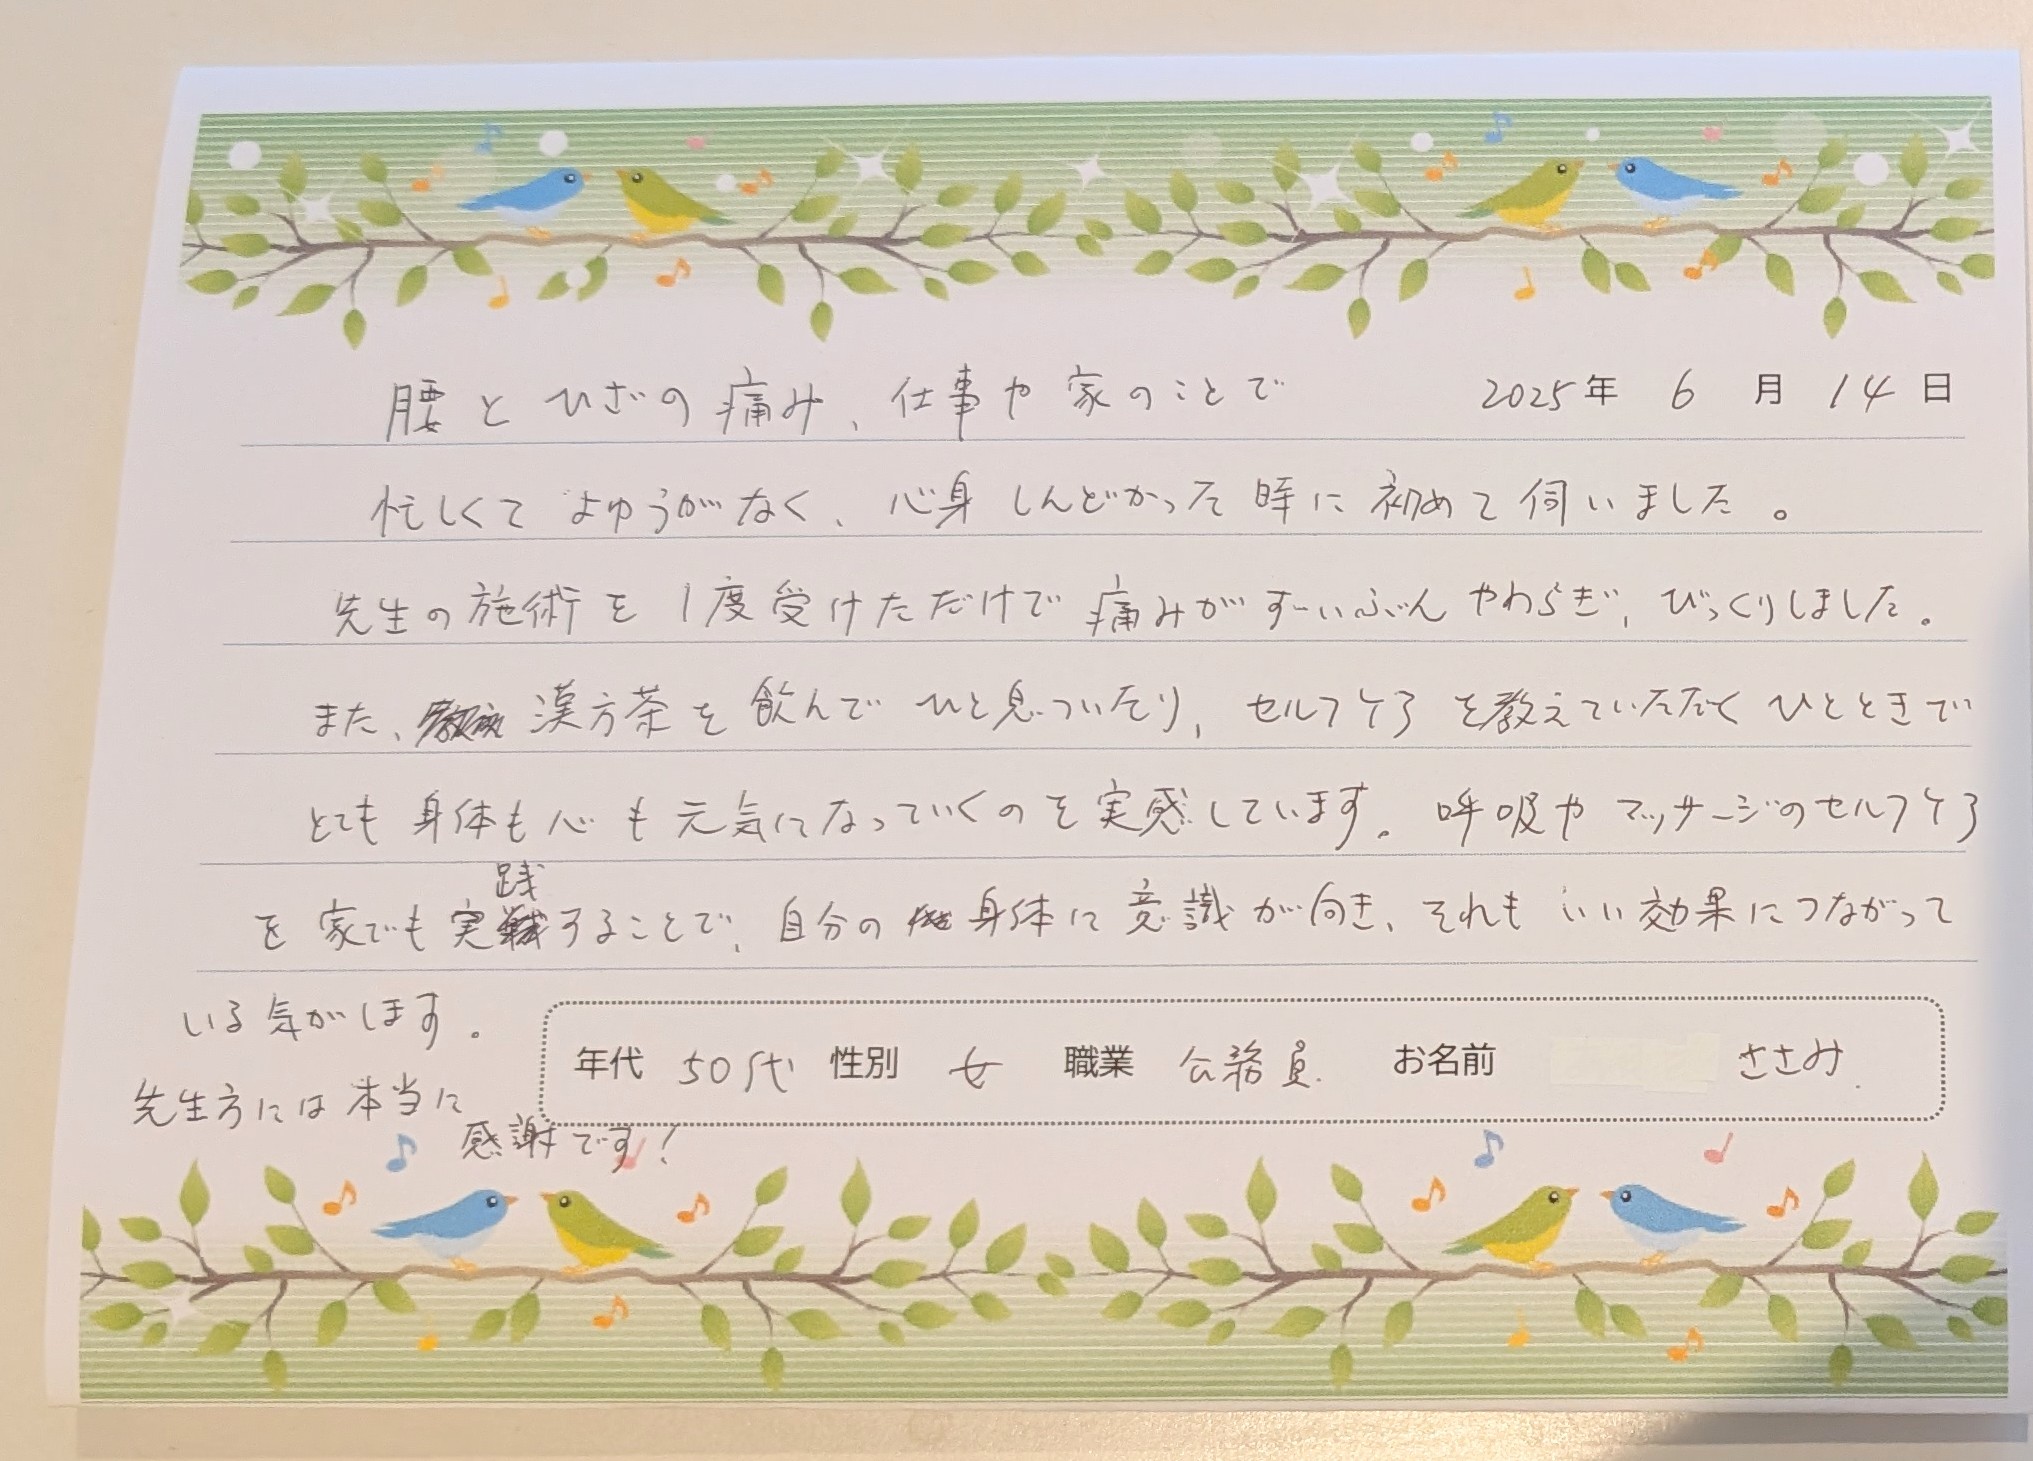 2025年 6 月 14 日
腰とひざの痛み、仕事や家のことで
忙しくてよゆうがなく、心身しんどかった時に初めて伺いました。
先生の施術を1度受けただけで痛みがずーいぶんやわらぎ、びっくりしました。
また、漢方茶を飲んでひと息ついたり、セルフケアを教えていただくひとときで
とても身体も心も元気になっていくのを実感しています。呼吸やマッサージのセルフケア
を家でも実践することで、自分の身体に意識が向き、それもいい効果につながって
いる気がします。
先生方には本当に
感謝です!
年代 50代 性別 女 職業 公務員 お名前 ささみ